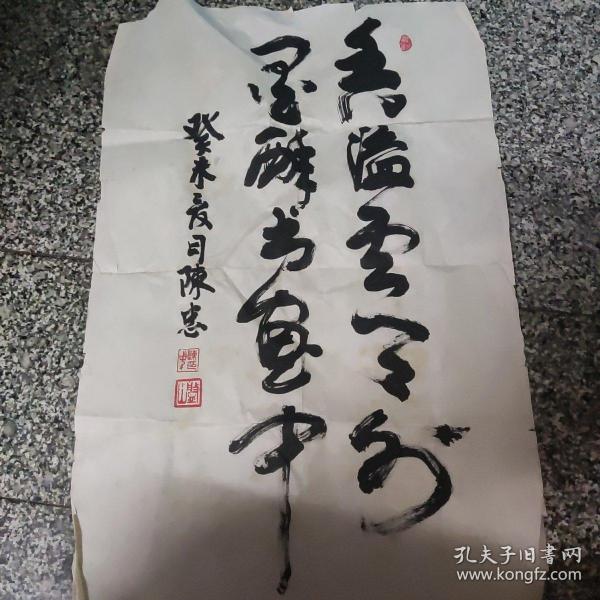 香溢云天外
墨醉书画中
癸未夏月陈忠
孔夫子旧書网
www.kongfz.com